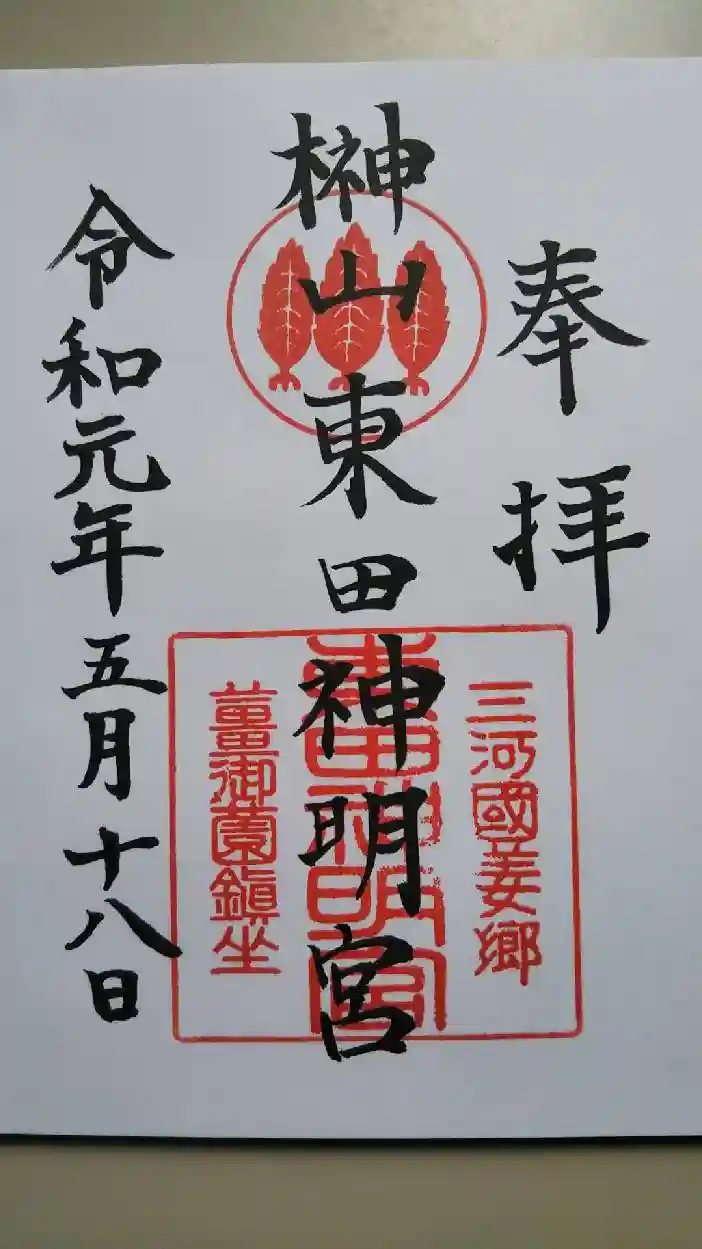 奉拝
三河國姜郷
榊山東田神明宮
東田神明宮
薑御薗鎮坐
令和元年五月十八日